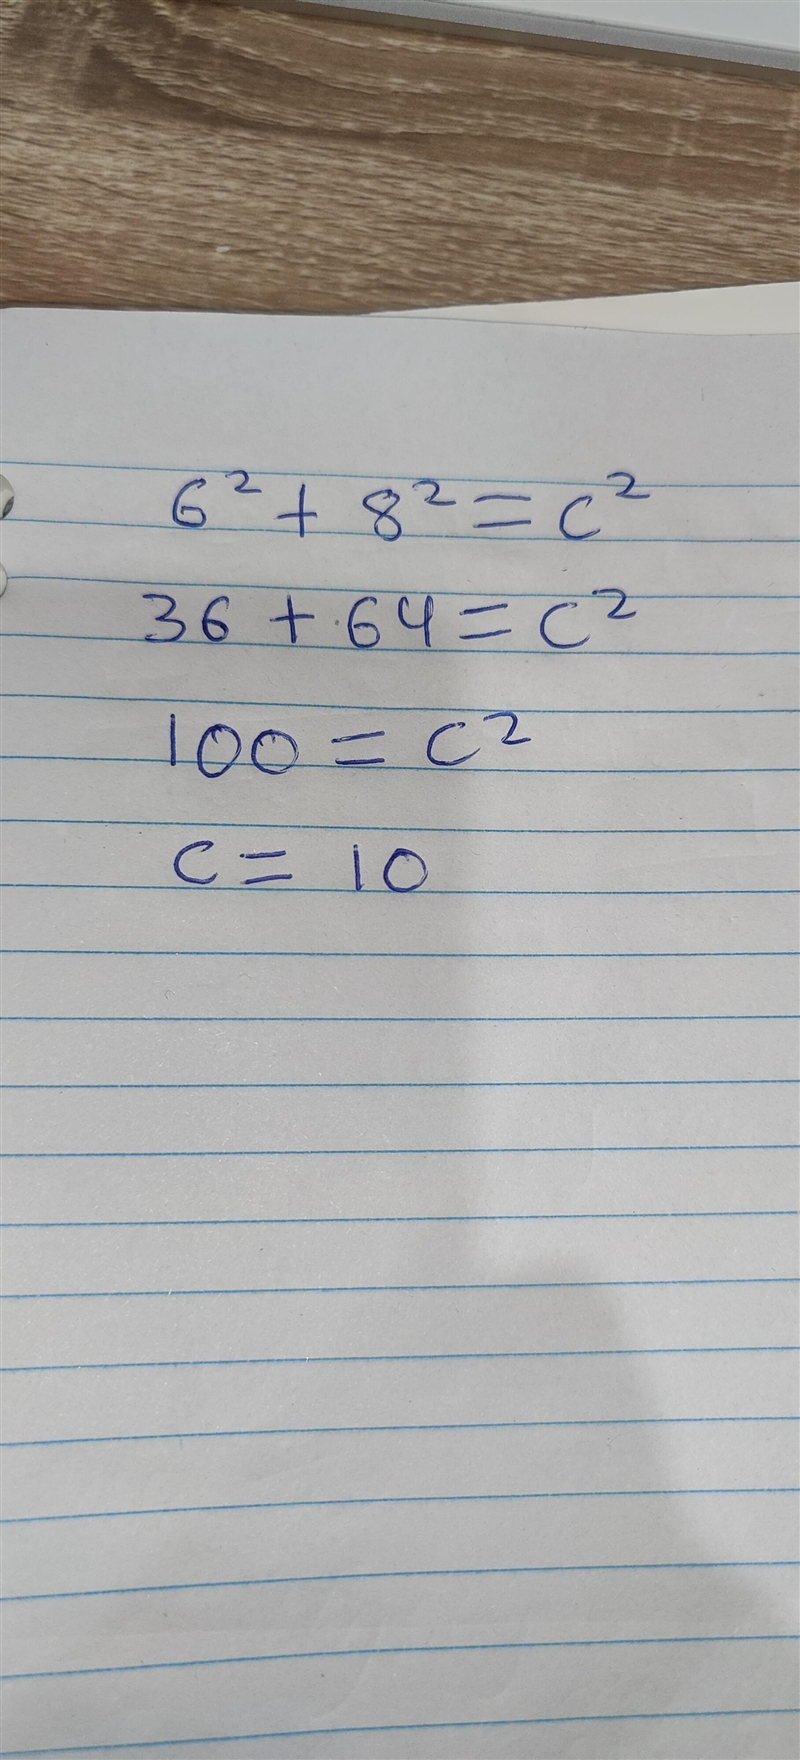 6² + 8² = c²
36 + 64 = c²
100 = c²
c = 10